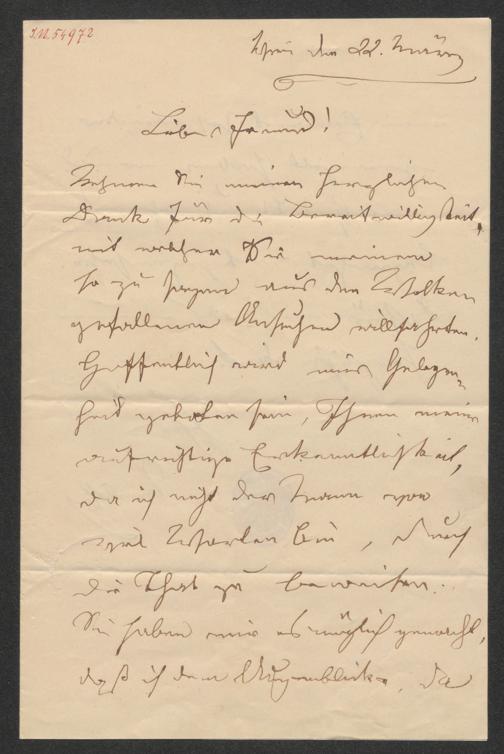 I.N. 54972
Wien den 22. März
Lieber Freund!
Nehmen Sie meinen herzlichen
Dank für die Bereitwilligkeit,
mit welcher Sie meinem
so zu sagen aus den Wolken
gefallenen Ansuchen willfahrten.
Hoffentlich wird mir Gelegen-
heit geboten sein, Ihnen meine
aufrichtige Erkenntlichkeit,
da ich nicht der Mann von
viel Worten bin, durch
die That zu beweisen.
Sie haben mir es möglich gemacht,
daß ich dem Augenblicke, da